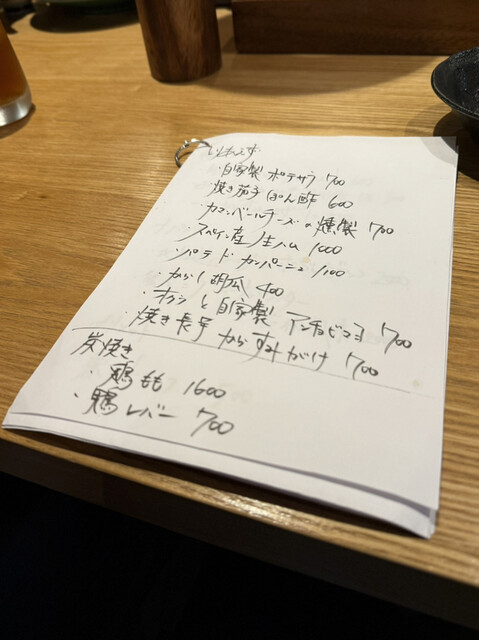 とりあえず
・自家製ポテサラ 700
・焼き茄子ぽん酢 600
・カマンベールチーズの燻製 700
・スペイン産生ハム 1000
・パテドカンパーニュ 1100
・からし胡瓜 400
・オクラと自家製アンチョビマヨ 700
・焼き長芋からすみがけ 700
炭焼き
・鶏もも 1600
・鶏レバー 700